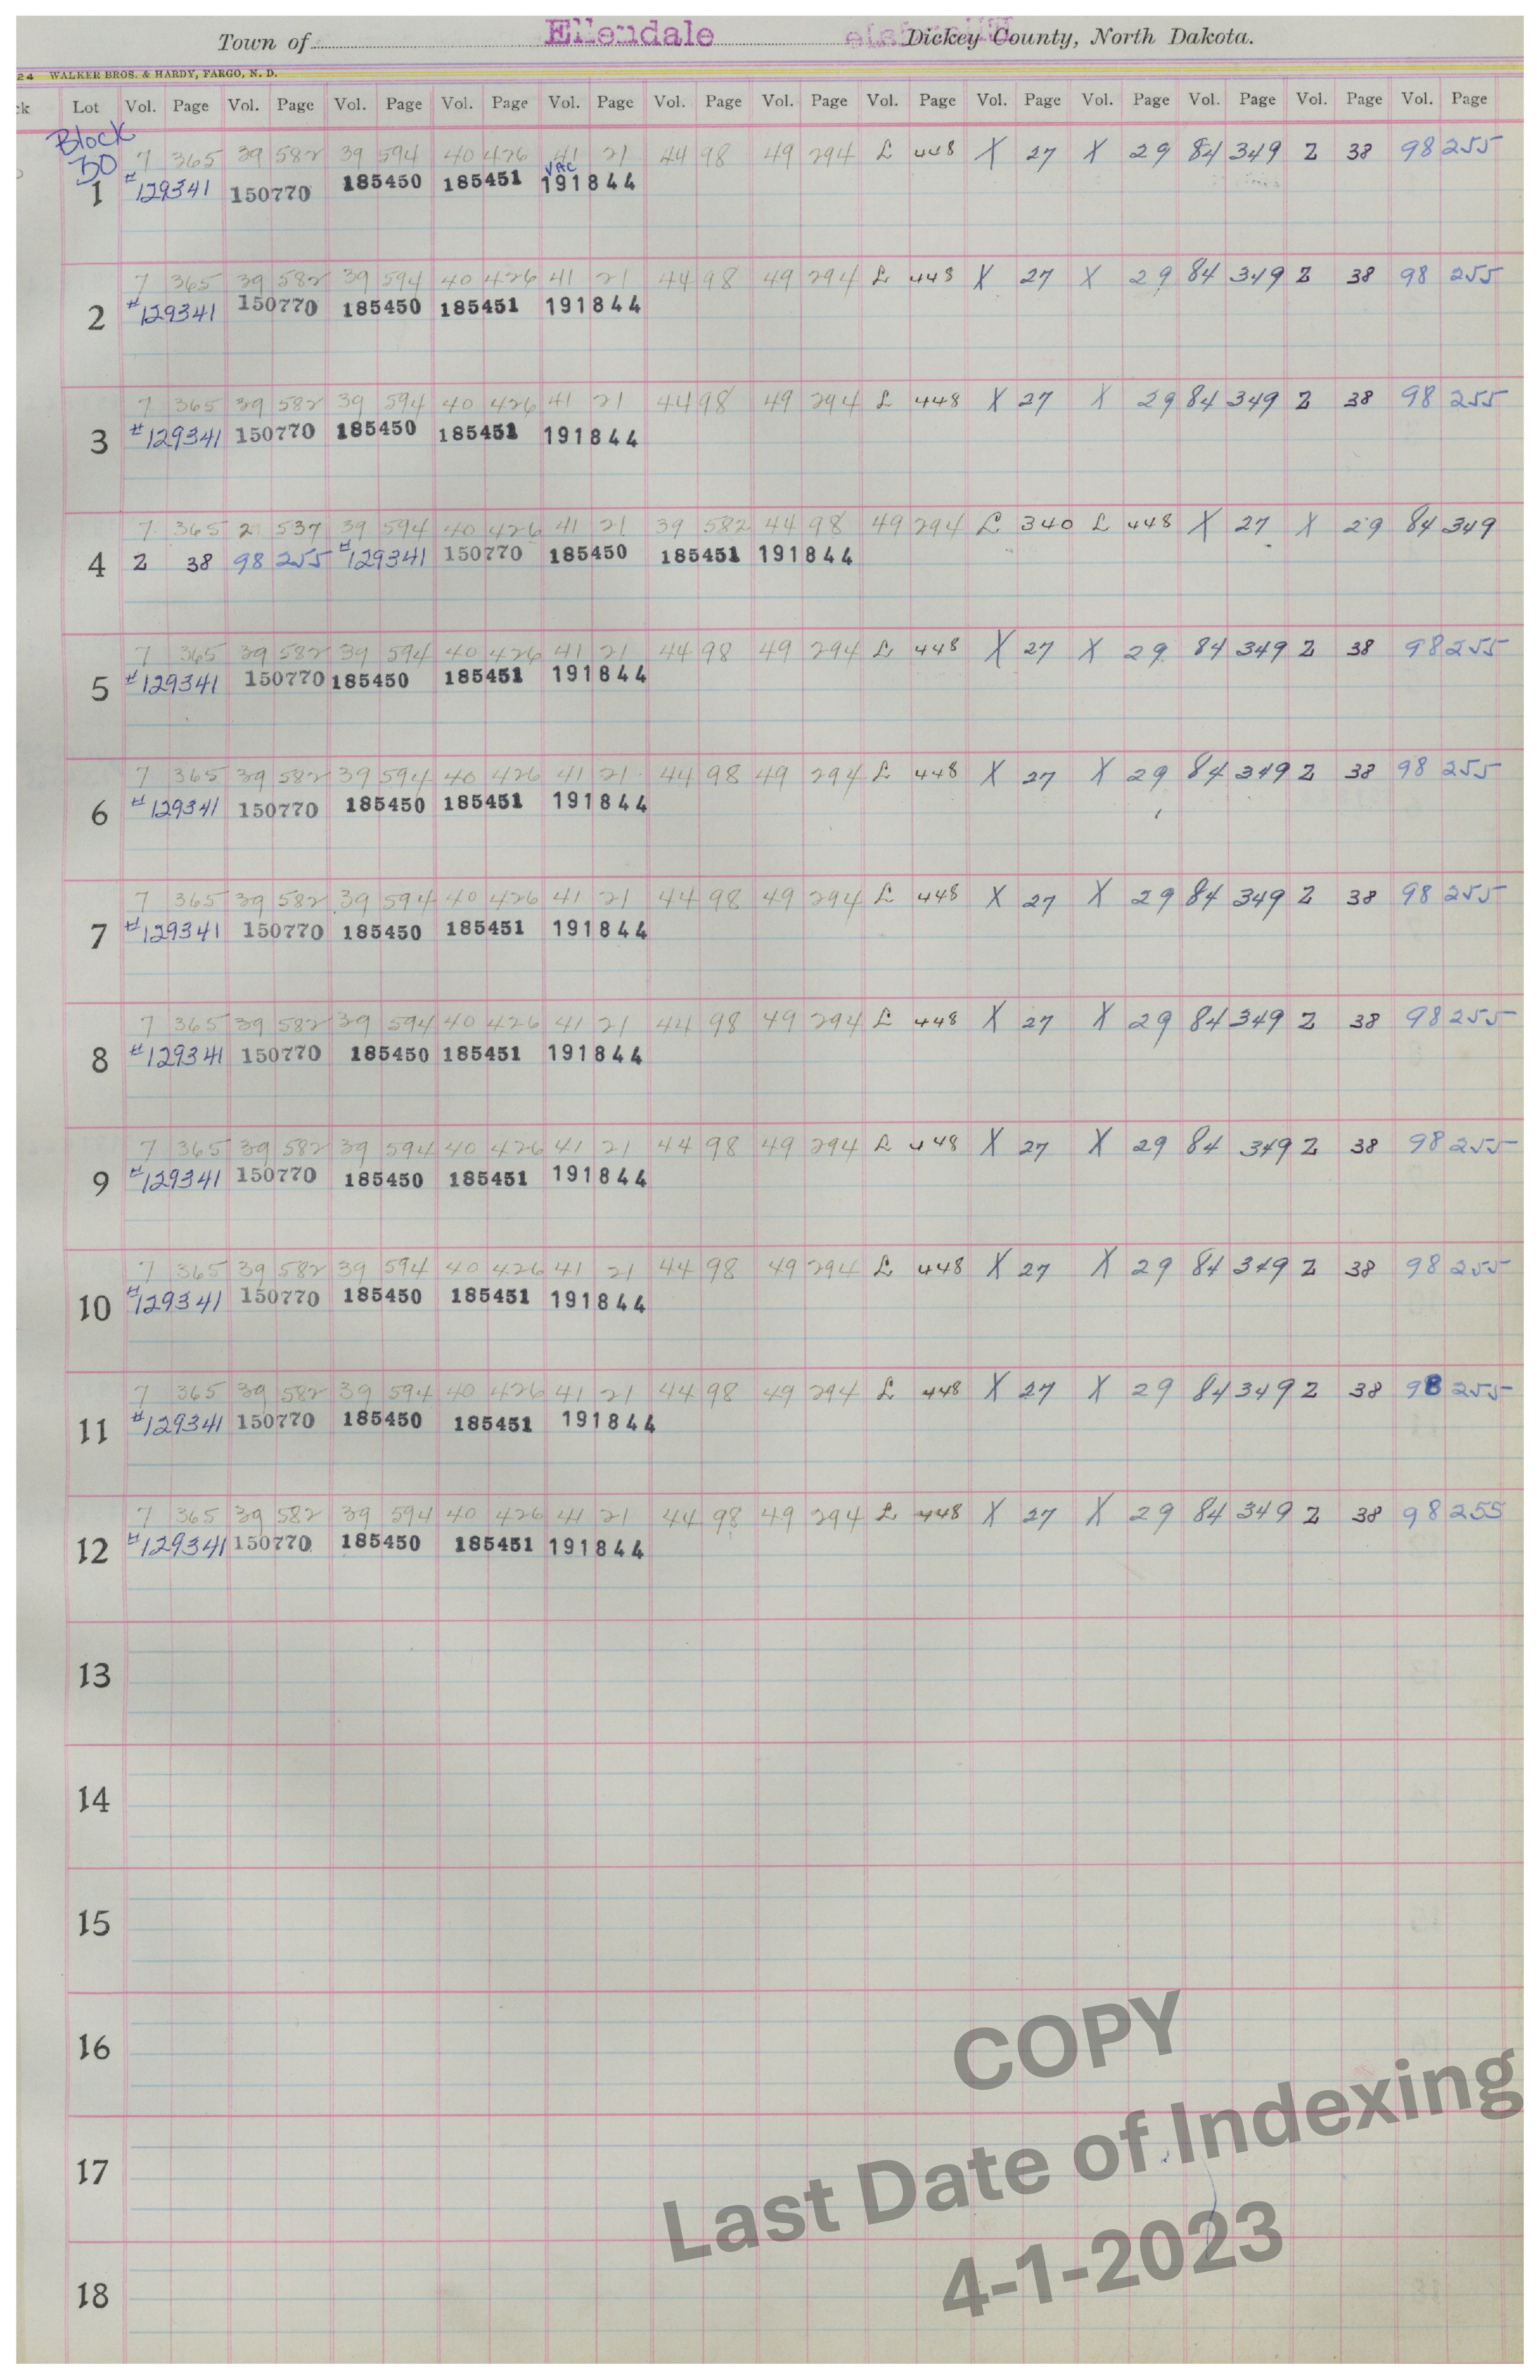 Town of Ellendale Dickey County, North Dakota.
24 WALKER BROS. & HARDY, FARGO, N. D.
ck Lot Vol. Page Vol. Page Vol. Page Vol. Page Vol. Page Vol. Page Vol. Page Vol. Page Vol. Page Vol. Page Vol. Page Vol. Page Vol. Page
Block
30 7 365 39 582 39 594 40 426 41 21 44 98 49 294 L 448 X 27 X 29 84 349 Z 38 98 255
VAC
1 #129341 150770 185450 185451 191844
7 365 39 582 39 594 40 426 41 21 44 98 49 294 L 448 X 27 X 29 84 349 Z 38 98 255
2 #129341 150770 185450 185451 191844
7 365 39 582 39 594 40 426 41 21 44 98 49 294 L 448 X 27 X 29 84 349 Z 38 98 255
3 #129341 150770 185450 185451 191844
7 365 2 537 39 594 40 426 41 21 39 582 44 98 49 294 L 340 L 448 X 27 X 29 84 349
4 Z 38 98 255 #129341 150770 185450 185451 191844
7 365 39 582 39 594 40 426 41 21 44 98 49 294 L 448 X 27 X 29 84 349 Z 38 98 255
5 #129341 150770 185450 185451 191844
7 365 39 582 39 594 40 426 41 21 44 98 49 294 L 448 X 27 X 29 84 349 Z 38 98 255
6 #129341 150770 185450 185451 191844
7 365 39 582 39 594 40 426 41 21 44 98 49 294 L 448 X 27 X 29 84 349 Z 38 98 255
7 #129341 150770 185450 185451 191844
7 365 39 582 39 594 40 426 41 21 44 98 49 294 L 448 X 27 X 29 84 349 Z 38 98 255
8 #129341 150770 185450 185451 191844
7 365 39 582 39 594 40 426 41 21 44 98 49 294 L 448 X 27 X 29 84 349 Z 38 98 255
9 #129341 150770 185450 185451 191844
7 365 39 582 39 594 40 426 41 21 44 98 49 294 L 448 X 27 X 29 84 349 Z 38 98 255
10 #129341 150770 185450 185451 191844
7 365 39 582 39 594 40 426 41 21 44 98 49 294 L 448 X 27 X 29 84 349 Z 38 98 255
11 #129341 150770 185450 185451 191844
7 365 39 582 39 594 40 426 41 21 44 98 49 294 L 448 X 27 X 29 84 349 Z 38 98 255
12 #129341 150770 185450 185451 191844
13
14
15
16
17
18
COPY
Last Date of Indexing
4-1-2023